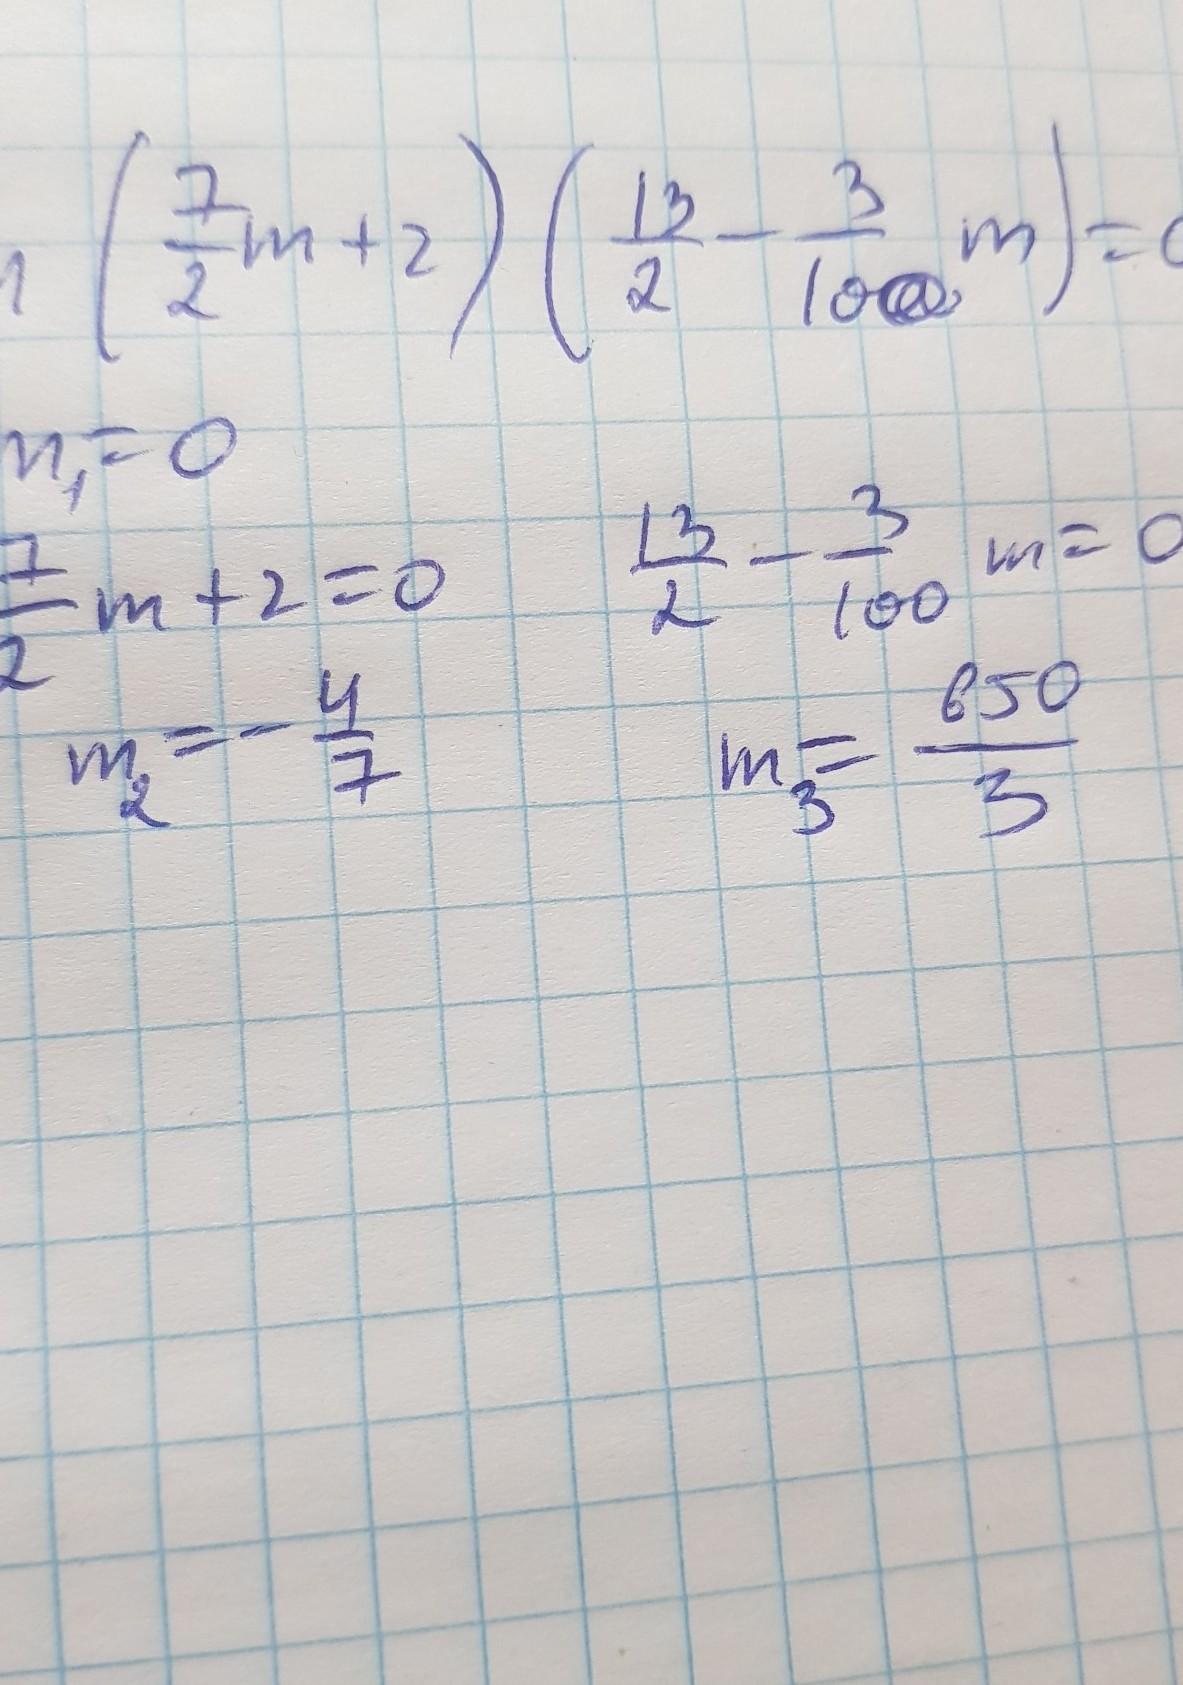 m (7/2 m + 2) (13/2 - 3/100 m) = 0
m₁ = 0
7/2 m + 2 = 0    13/2 - 3/100 m = 0
m₂ = - 4/7    m₃ = 650/3